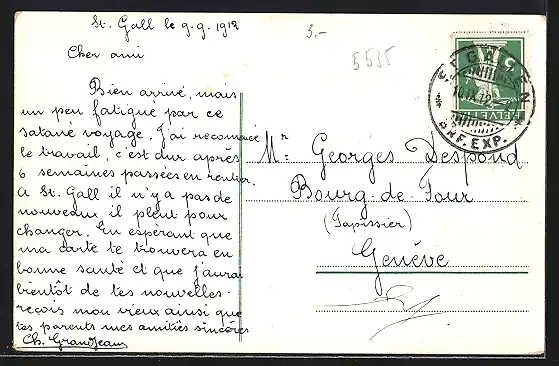 St. Gall le 9.9.1912
3.-
5535
Cher ami
Bien arrivé, mais
un peu fatigué par ce
satané voyage. J'ai recommencé
le travail, c'est dur après
6 semaines passées en rentier.
A St. Gall il n'y a pas de
nouveau il pleut pour
changer. En espérant que
ma carte te trouvera en
bonne santé et que j'aurai
bientôt de tes nouvelles.
reçois mon vieux ainsi que
tes parents mes amitiés sincères
Ch. Grandjean
Mr. Georges Despond
Bourg-de-Four
(Tapissier)
Genève
ST. GALLEN
10.IX.12
BRF. EXP.
HELVETIA
5